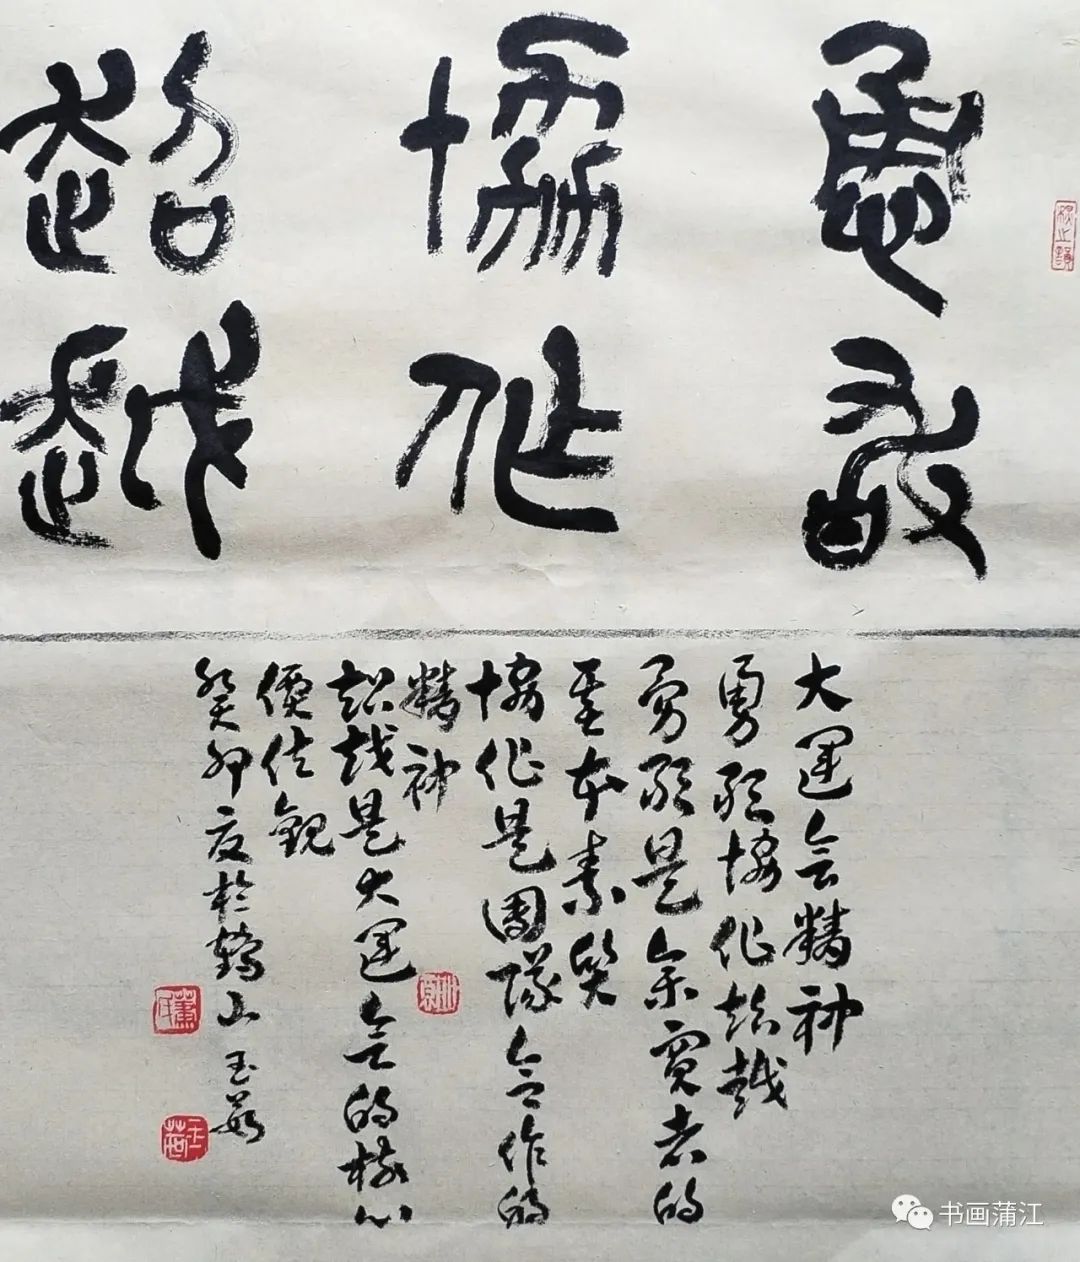 勇敢
協作
超越
大運会精神
勇敢協作超越
勇敢是參賽者的
基本素質
協作是團隊合作的
精神
超越是大運会的核心
價值觀
癸卯夏於鶴山玉茹
董氏
玉茹
书画蒲江